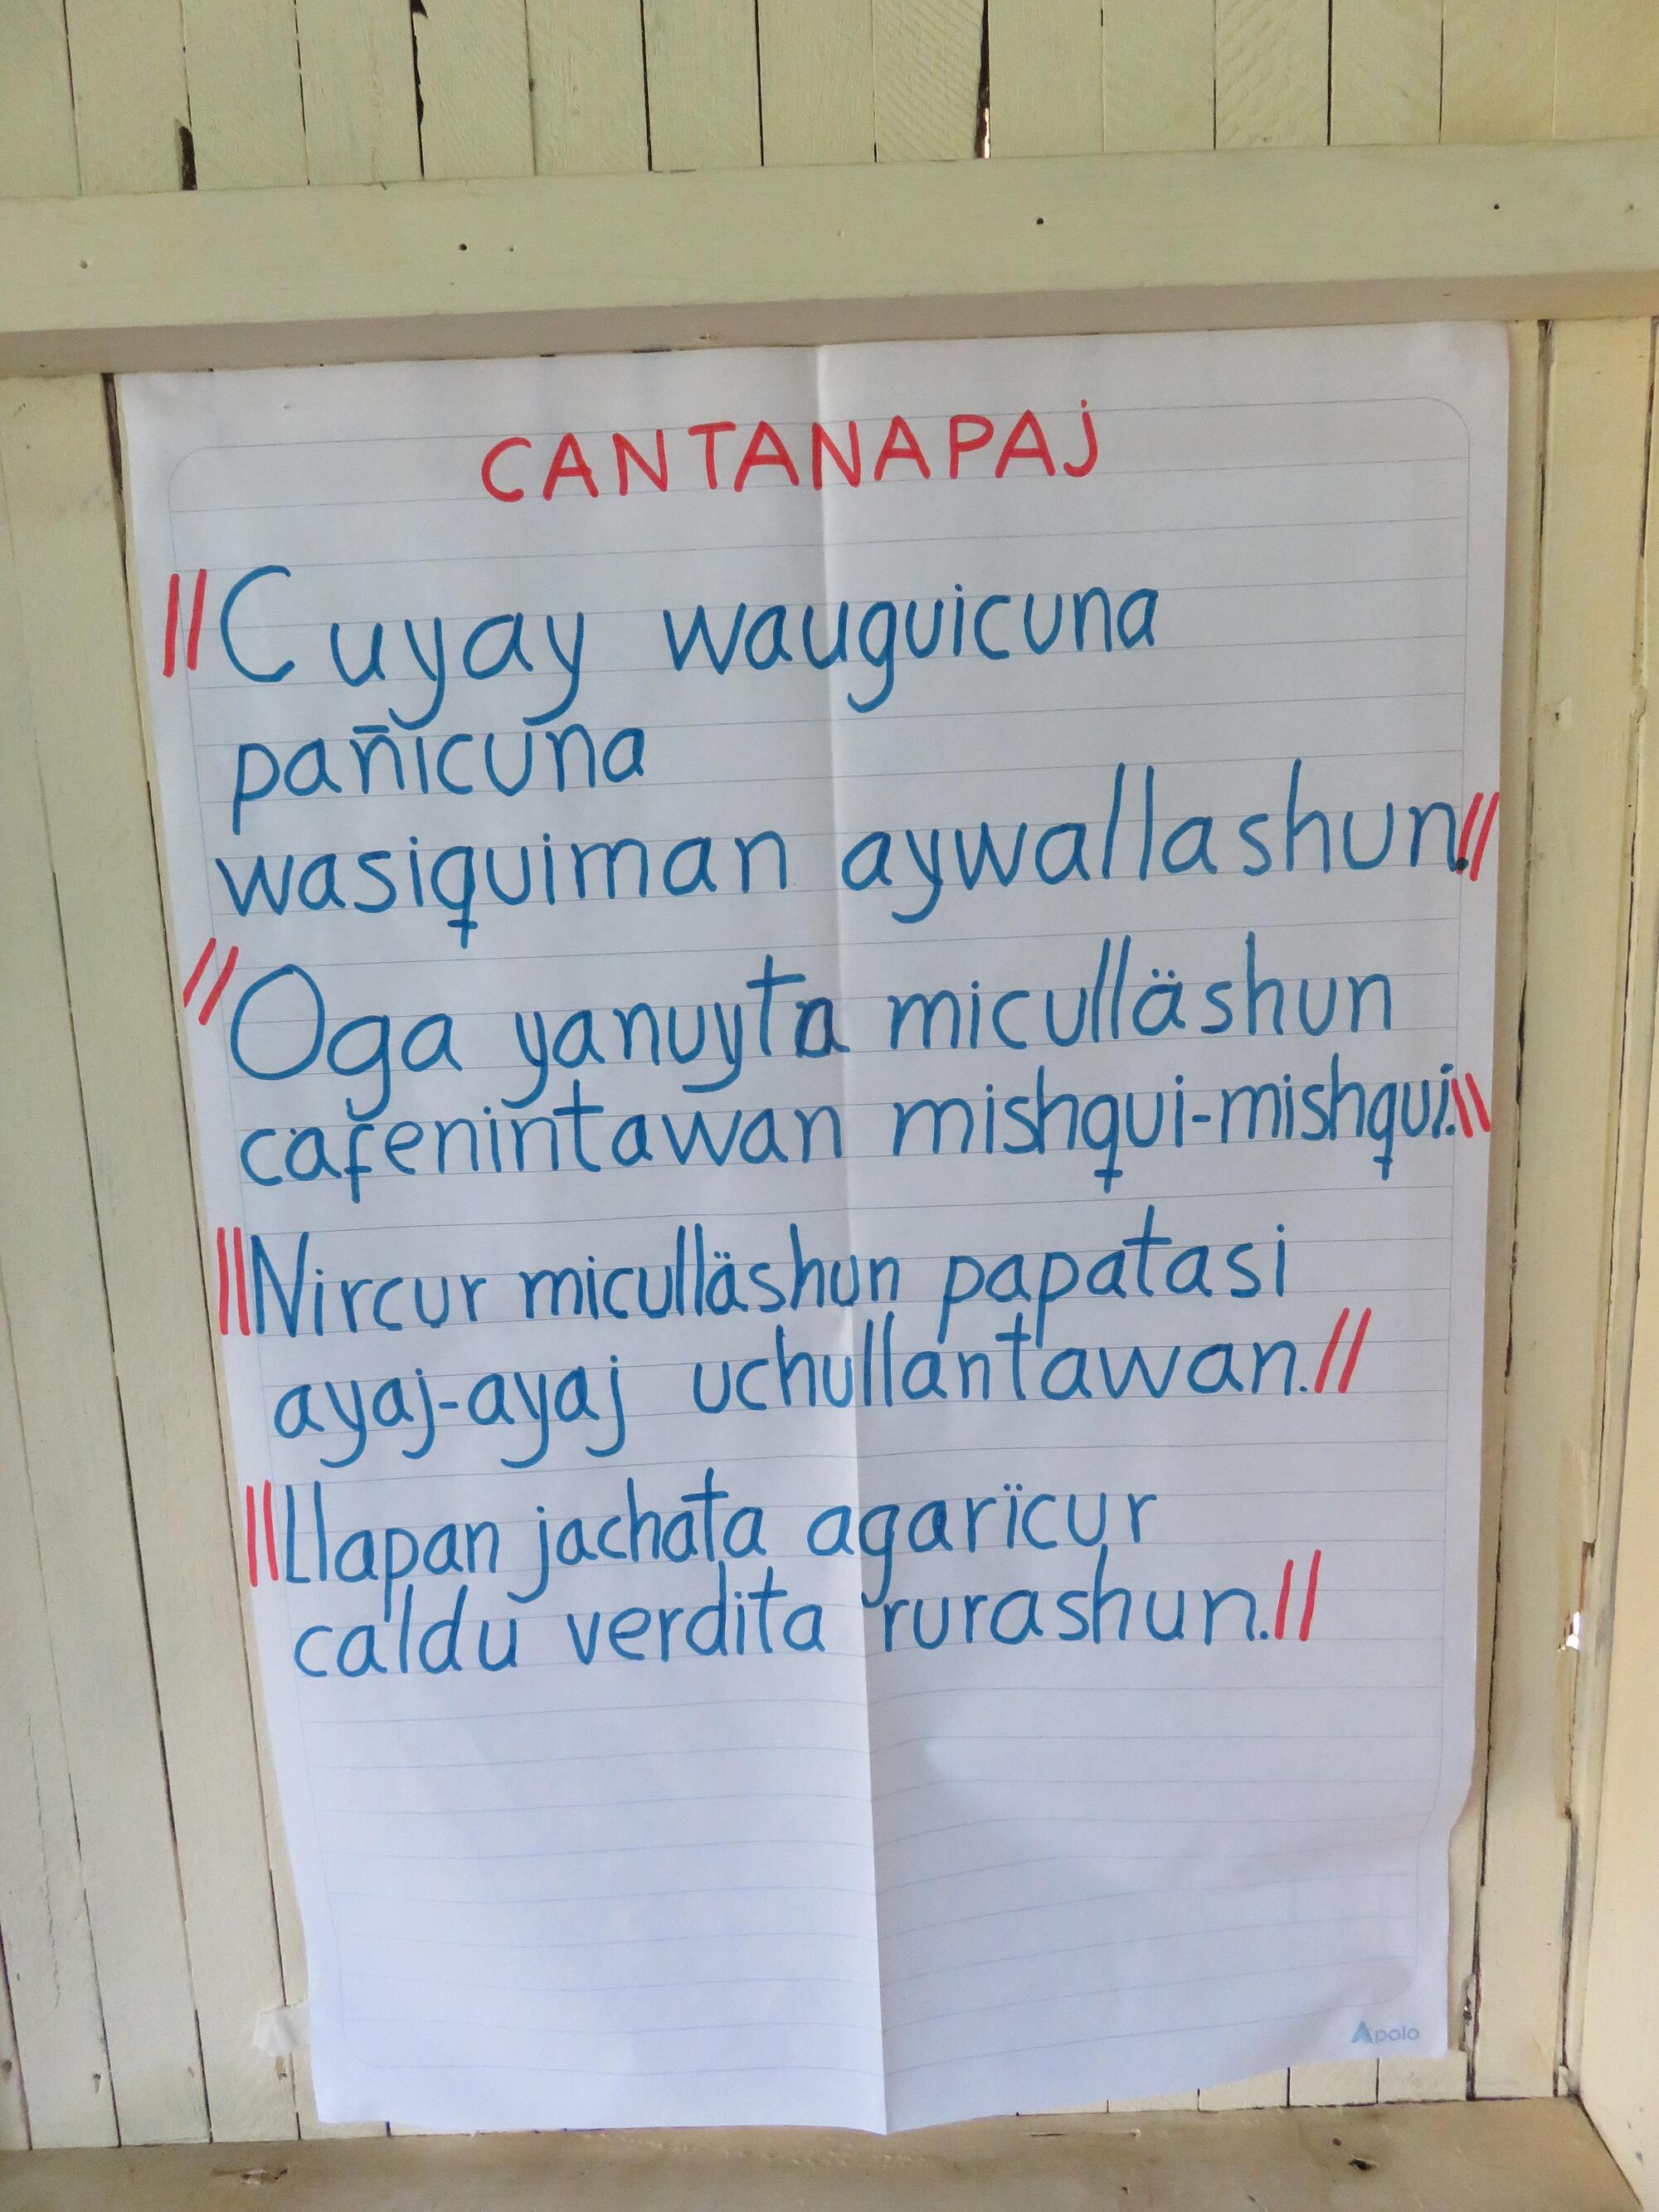 CANTANAPAJ
||Cuyay wauguicuna
pañicuna
wasiquiman aywallashun.//
//Oga yanuyta miculläshun
cafenintawan mishqui-mishqui.\\
||Nircur miculläshun papatasi
ayaj-ayaj uchullantawan.//
||Llapan jachata agarïcur
caldu verdita rurashun.//
Apolo